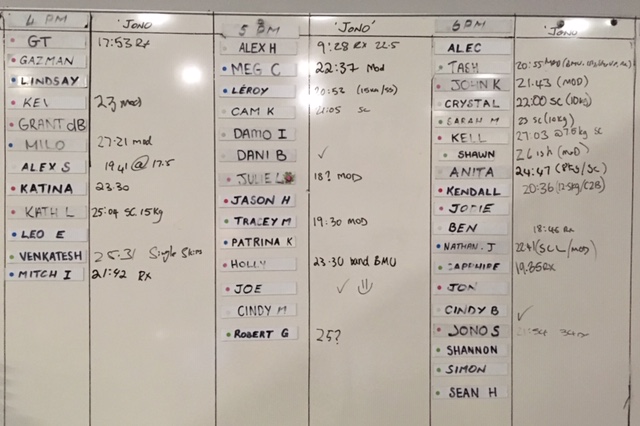 4 PM 'JONO'
GT 17:53 Rx
GAZMAN
LINDSAY
KEV 23 mod
GRANT dB
MILO 27:21 mod
ALEX S 19:41 @ 17.5
KATINA 23:30
KATH L 25:04 SC 15kg
LEO E
VENKATESH 25:31 Single Skips
MITCH I 21:42 RX
5 PM 'JONO'
ALEX H 9:28 RX 22.5
MEG C 22:37 Mod
LEROY 20:52
CAM K 21:05 SC
DAMO I
DANI B ✓
JULIE L 18? MOD
JASON H
TRACEY M 19:30 MOD
PATRINA K
HOLLY 23:30 band BMU
JOE ✓
CINDY M
ROBERT G 25?
6 PM 'JONO'
ALEC
TASH 20:55 MOD
JOHN K 21:43 (MOD)
CRYSTAL 22:00 SC (10kg)
SARAH M 23 SC (10kg)
KELL 27:03 SC
SHAWN (MOD)
ANITA 24:47 (SC)
KENDALL 20:36 (12.5kg/C2B)
JODIE
BEN 18:46 Rx
NATHAN. J 22:41 (SCL/MOD)
SAPPHIRE 19:35 RX
JON
CINDY B ✓
JONO S
SHANNON
SIMON
SEAN H